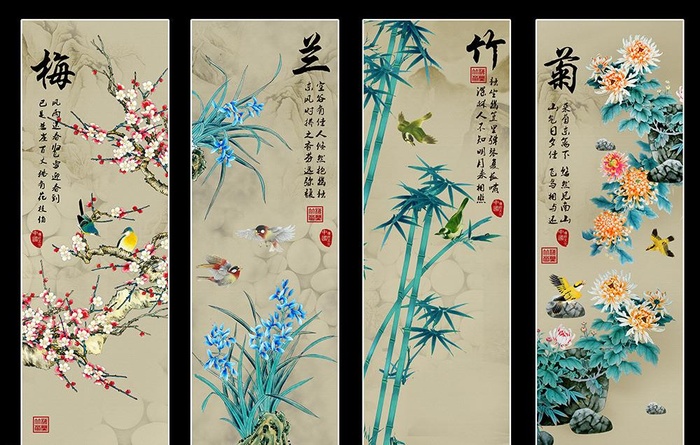 梅
风雨送春归飞雪迎春到
已是悬崖百丈冰犹有花枝俏
兰
空谷有佳人倏然抱幽独
东风时拂之香芬远弥馥
竹
独坐幽篁里弹琴复长啸
深林人不知明月来相照
菊
采菊东篱下 悠然见南山
山气日夕佳 飞鸟相与还